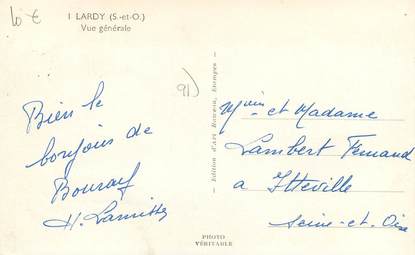 10 €
1 LARDY (S.-et-O.)
Vue générale
91
Bien le
bonjour de
Bouray
H.
Edition d'Art Rameau, Etampes
Mr et Madame
Lambert Fernand
a Itteville
Seine-et-Oise
PHOTO
VÉRITABLE